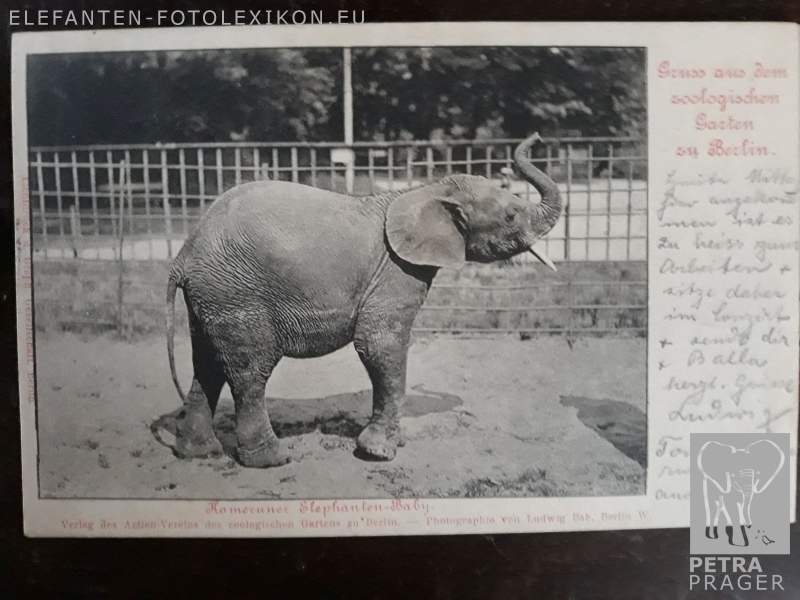 ELEFANTEN-FOTOLEXIKON.EU
Gruss aus dem
zoologischen
Garten
zu Berlin.
angekom
men ist es
zu heiss zum
Arbeiten +
sitze daher
im
+ sende dir
+ Balla
herzl. Grüsse
Ludwig
Kameruner Elephanten-Baby.
Verlag des Actien-Vereins des zoologischen Gartens zu Berlin. — Photographie von Ludwig Bab, Berlin W.
PETRA
PRAGER